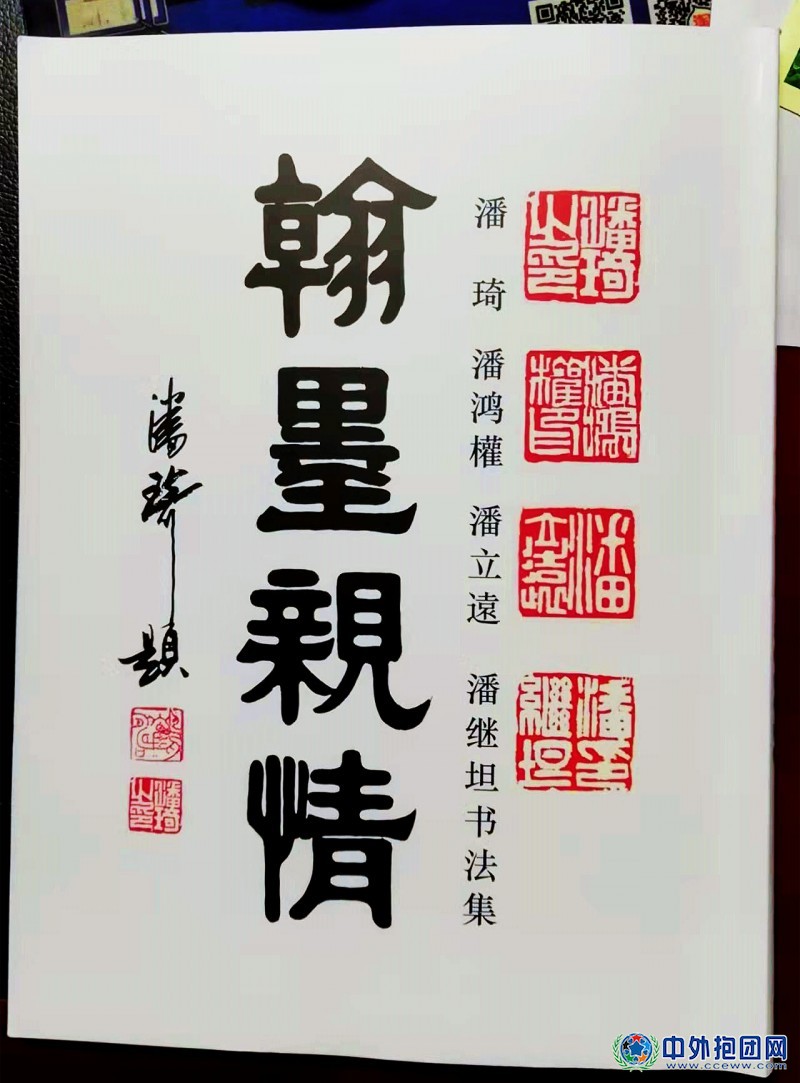 潘琦之印
潘鴻權印
潘立遠
潘 琦 潘鸿權 潘立遠 潘继坦书法集
翰墨親情
潘琦題
潘琦之印
中外抱团网
www.cceww.com